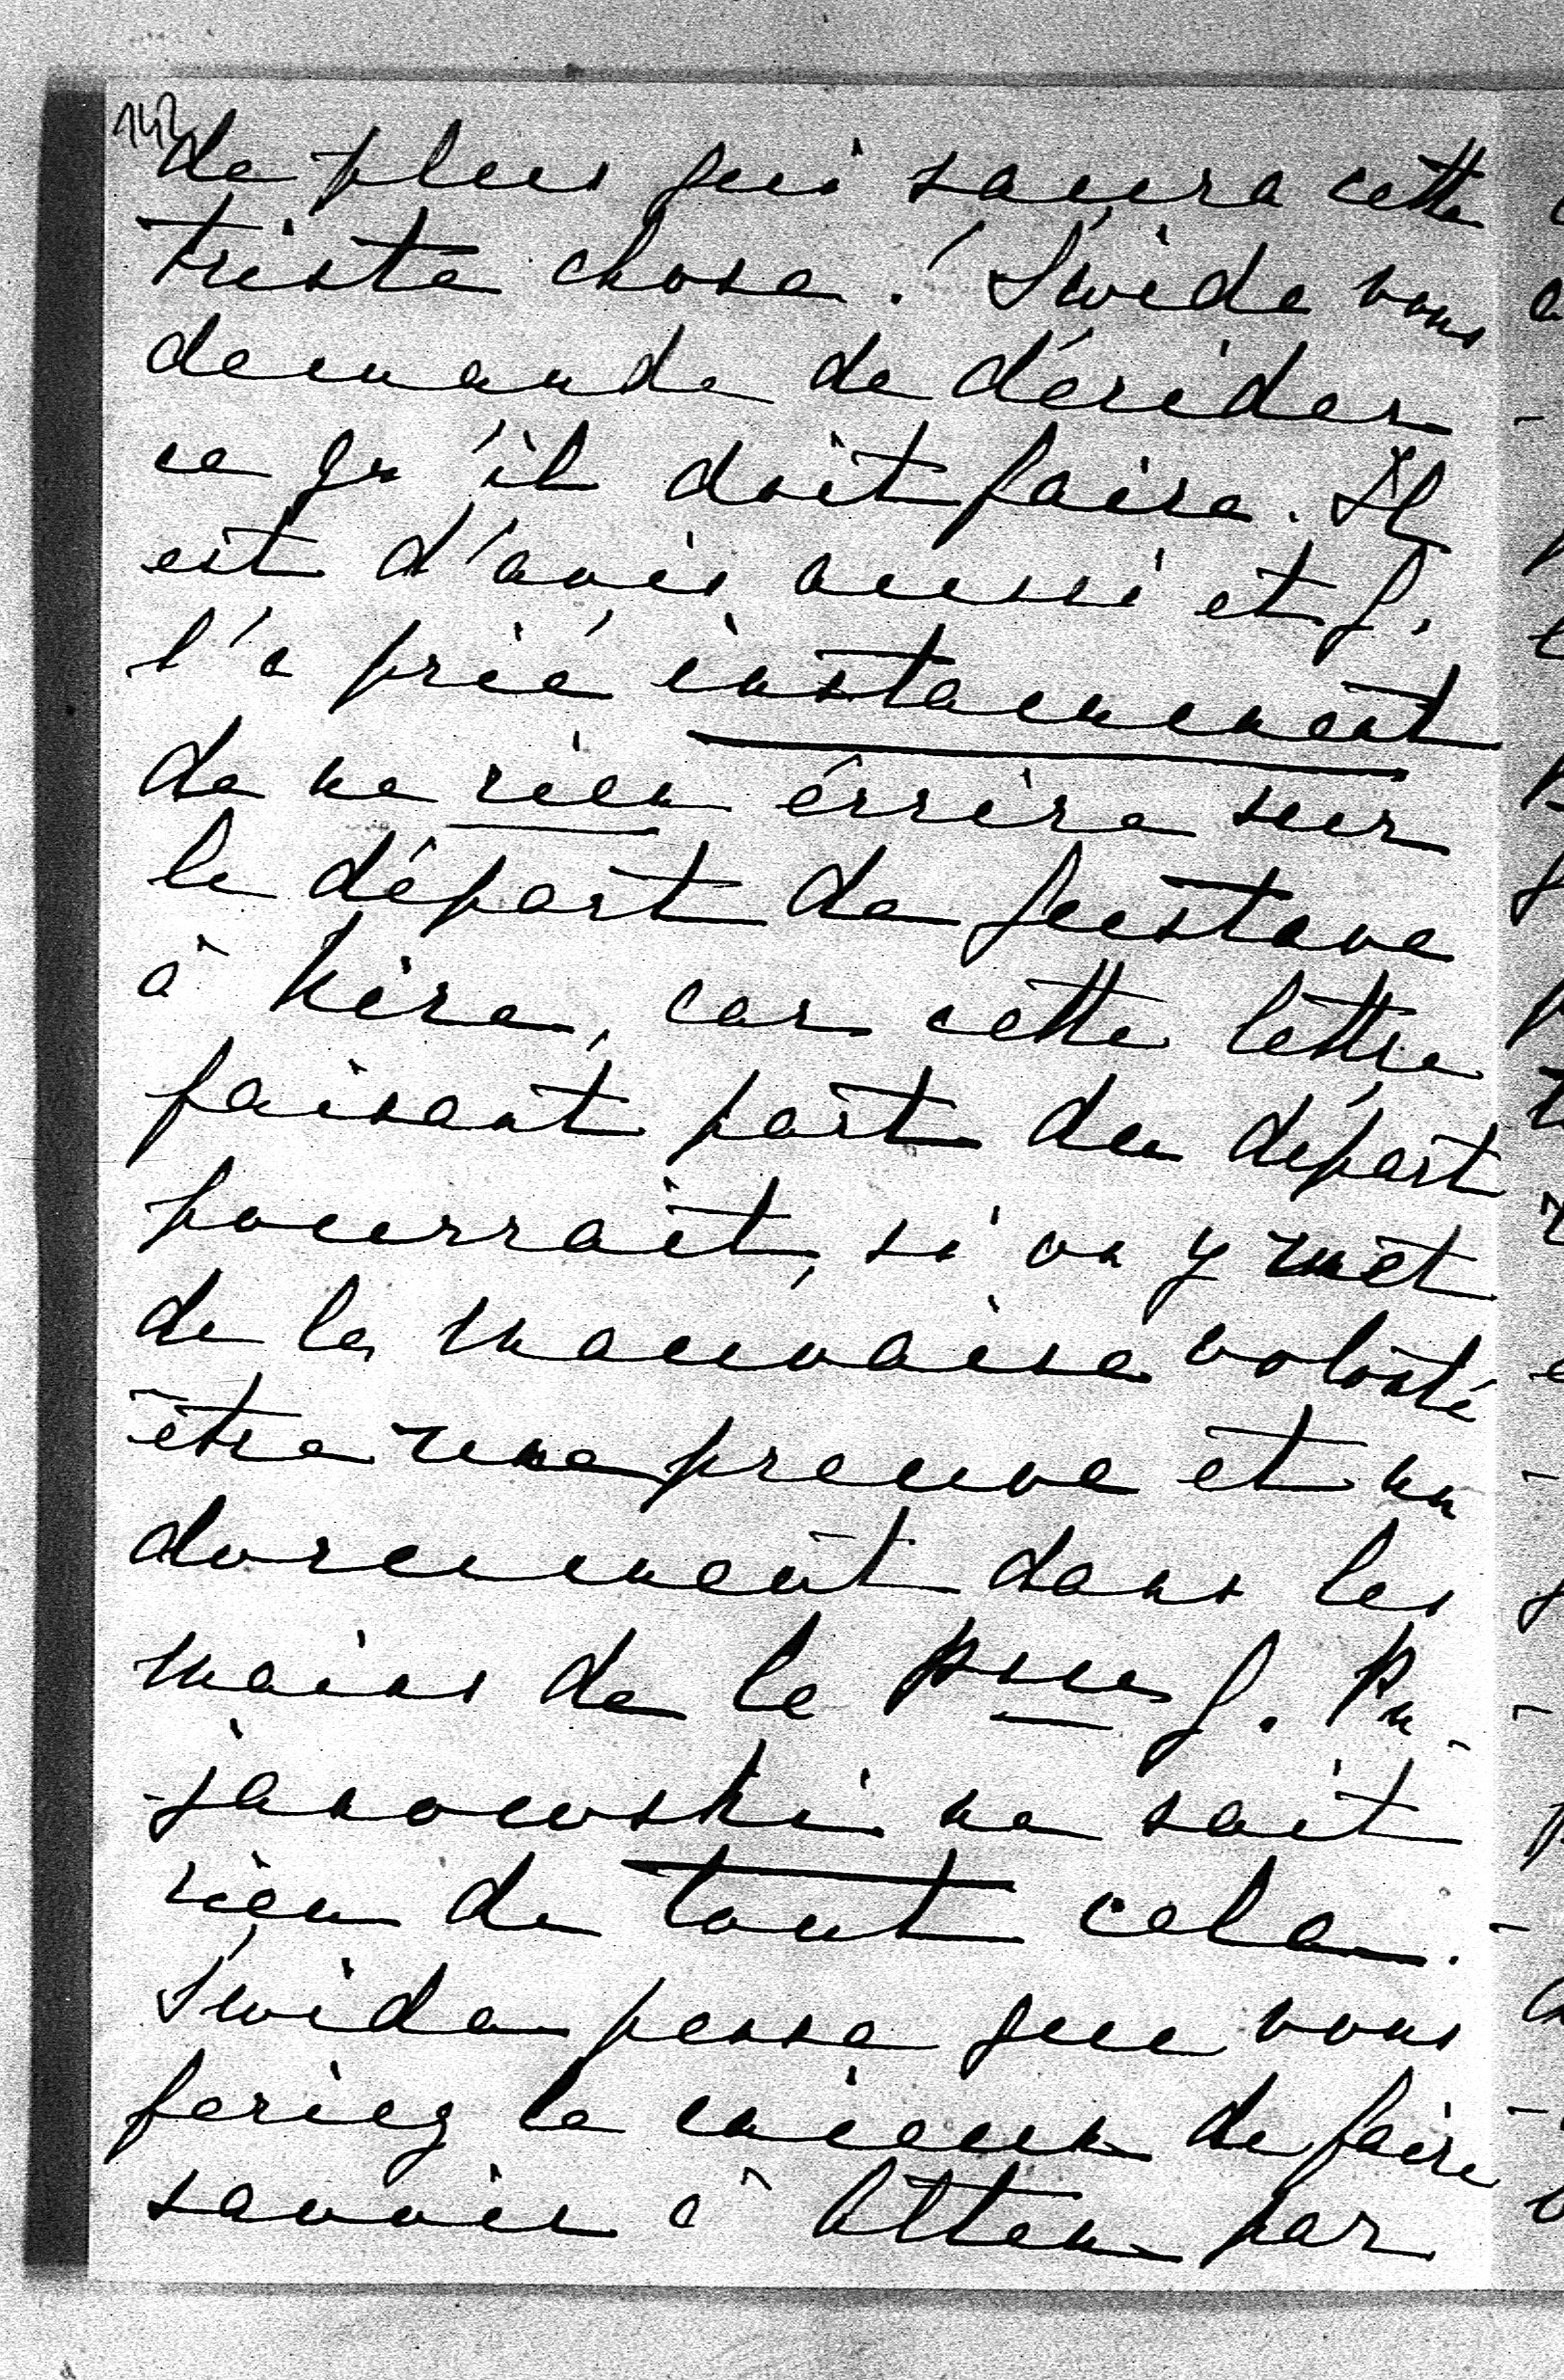 142
de plus qui saura cette
triste chose! Swida vous
demande de décider
ce qu'il doit faire. Il
est d'avis aussi et J.
l'a prié instamment
de ne rien écrire sur
le départ de Gustave
à Kira, car cette lettre
faisant part du départ
pourrait, si on y met
de la mauvaise volonté
être une preuve et un
document dans les
mains de la Psse J. Pu-
janowski ne sait
rien de tout cela.
Swida pense que vous
feriez le mieux de faire
savoir à Otten par